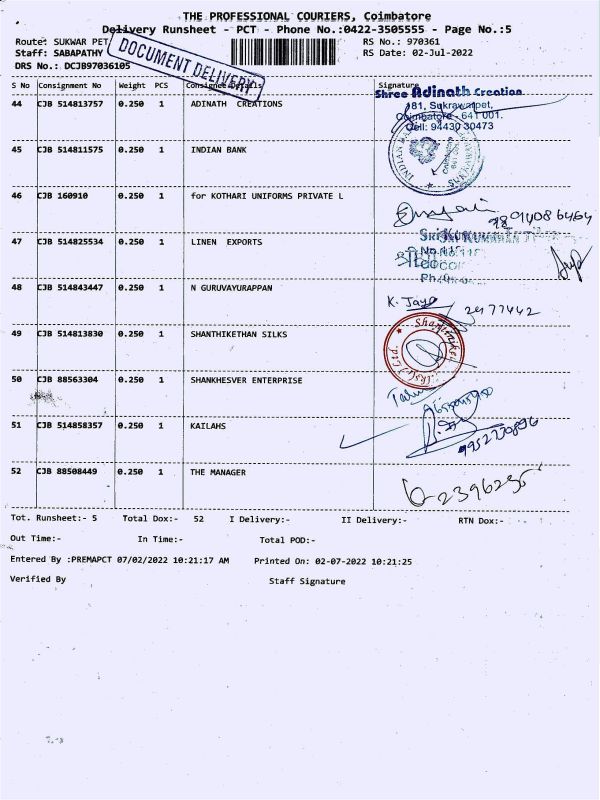 THE PROFESSIONAL COURIERS, Coimbatore
Delivery Runsheet - PCT - Phone No.:0422-3505555 - Page No.:5
Route: SUKWAR PET
RS No.: 970361
Staff: SABAPATHY
RS Date: 02-Jul-2022
DRS No.: DCJB97036105
DOCUMENT DELIVERY
S No Consignment No Weight PCS Consignee Details Signature
44 CJB 514813757 0.250 1 ADINATH CREATIONS
Shree Adinath Creation
481, Sukrawarpet,
Coimbatore - 641 001.
Cell: 94430 30473
45 CJB 514811575 0.250 1 INDIAN BANK
INDIAN
46 CJB 160910 0.250 1 for KOTHARI UNIFORMS PRIVATE L
47 CJB 514825534 0.250 1 LINEN EXPORTS
48 CJB 514843447 0.250 1 N GURUVAYURAPPAN
K. Jaya
2477442
49 CJB 514813830 0.250 1 SHANTHIKETHAN SILKS
50 CJB 88563304 0.250 1 SHANKHESVER ENTERPRISE
51 CJB 514858357 0.250 1 KAILAHS
9952730896
52 CJB 88508449 0.250 1 THE MANAGER
Tot. Runsheet:- 5 Total Dox:- 52 I Delivery:- II Delivery:- RTN Dox:-
Out Time:- In Time:- Total POD:-
Entered By :PREMAPCT 07/02/2022 10:21:17 AM Printed On: 02-07-2022 10:21:25
Verified By Staff Signature